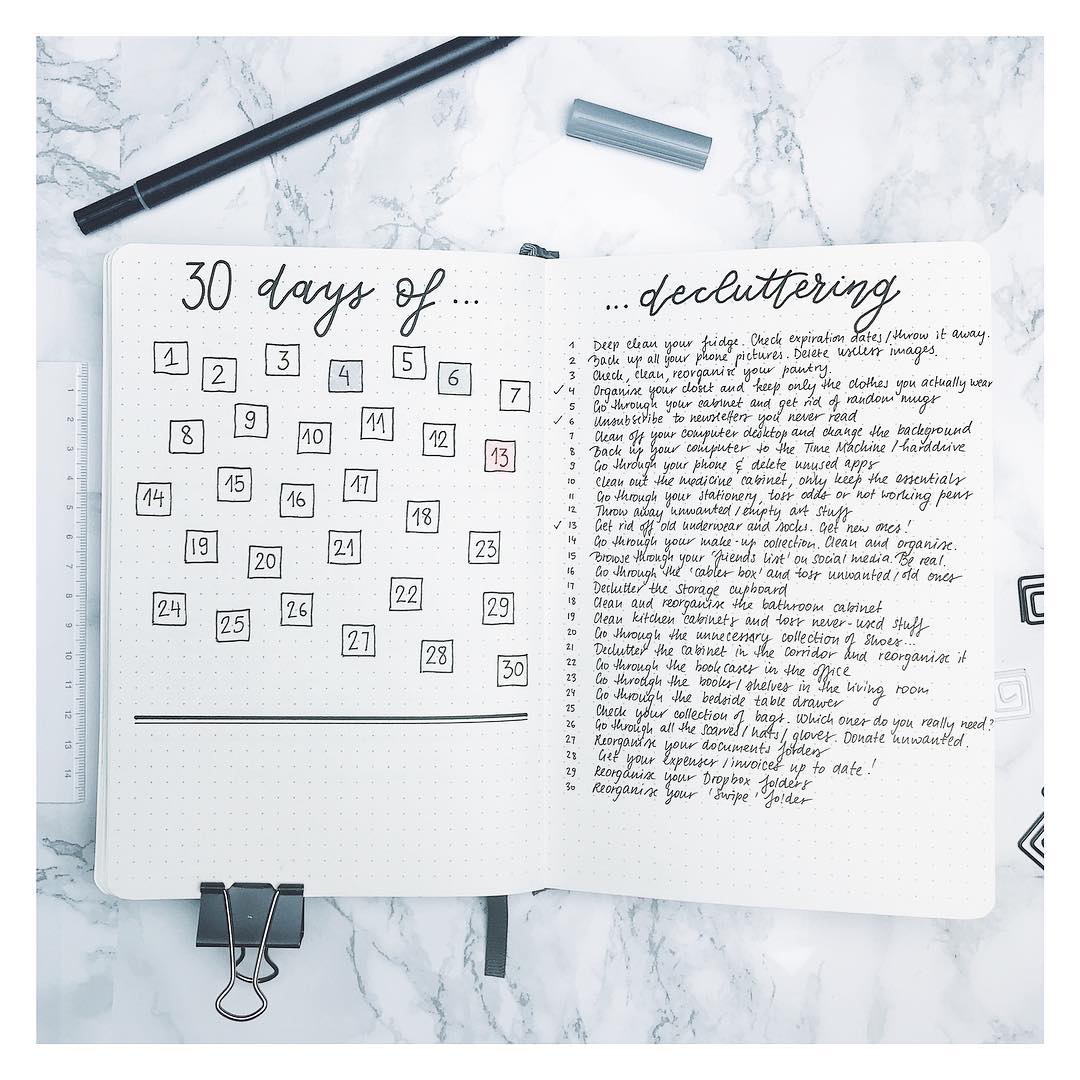 30 days of...
1 2 3 4 5 6 7
8 9 10 11 12 13
14 15 16 17 18
19 20 21 23
24 25 26 22 29
27 28 30
...decluttering
1 Deep clean your fridge. Check expiration dates/throw it away.
2 Back up all your phone pictures. Delete useless images.
3 Check, clean, reorganise your pantry.
✓ 4 Organise your closet and keep only the clothes you actually wear
5 Go through your cabinet and get rid of random mugs
✓ 6 Unsubscribe to newsletters you never read
7 Clean off your computer desktop and change the background
8 Back up your computer to the Time Machine/harddrive
9 Go through your phone & delete unused apps
10 Clean out the medicine cabinet, only keep the essentials
11 Go through your stationery, toss odds or not working pens
12 Throw away unwanted/empty art stuff
✓ 13 Get rid off old underwear and socks. Get new ones!
14 Go through your make-up collection. Clean and organise.
15 Browse through your 'friends list' on social media. Be real.
16 Go through the 'cables box' and toss unwanted/old ones
17 Declutter the storage cupboard
18 Clean and reorganise the bathroom cabinet
19 Clean kitchen cabinets and toss never-used stuff
20 Go through the unnecessary collection of shoes...
21 Declutter the cabinet in the corridor and reorganise it
22 Go through the bookcases in the office
23 Go through the books/shelves in the living room
24 Go through the bedside table drawer
25 Check your collection of bags. Which ones do you really need?
26 Go through all the scarves/hats/gloves. Donate unwanted.
27 Reorganise your documents folders
28 Get your expenses/invoices up to date!
29 Reorganise your Dropbox folders
30 Reorganise your 'Swipe' folder
1
2
3
4
5
6
7
8
9
10
11
12
13
14